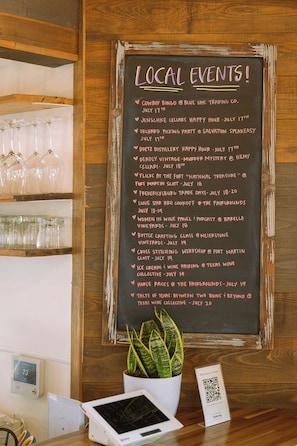 LOCAL EVENTS!
COWBOY BINGO @ BLUE OAK TRADING CO.
JULY 17TH
JENSCHKE CELLARS HAPPY HOUR - JULY 17TH
RECORD PICKING PARTY @ SALVATION SPEAKEASY
JULY 17TH
DIETZ DISTILLERY HAPPY HOUR - JULY 17TH
DEADLY VINTAGE - MURDER MYSTERY @
CELLARS - JULY 18TH
FLICKS AT THE FORT "NATIONAL TREASURE" @
FORT MARTIN SCOTT - JULY 18
FREDERICKSBURG TRADE DAYS - JULY 18-20
LONE STAR BBQ COOKOFF @ THE FAIRGROUNDS
JULY 18-19
WOMEN IN WINE PANEL @ NARRATIVE
VINEYARDS - JULY 19
BOTTLE CRAFTING CLASS @
VINEYARDS - JULY 19
CROSS STITCHING WORKSHOP @ FORT MARTIN
SCOTT - JULY 19
ICE CREAM & WINE PAIRING @ TEXAS WINE
COLLECTIVE - JULY 19
HORSE RACES @ THE FAIRGROUNDS - JULY 19
TASTE OF TEXAS: BETWEEN TWO & BEYOND @
TEXAS WINE COLLECTIVE - JULY 20
73